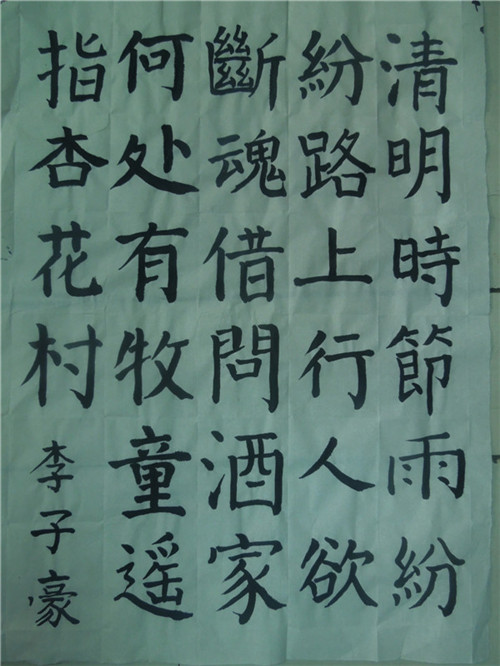 清明時節雨紛
紛路上行人欲
斷魂借問酒家
何处有牧童遥
指杏花村
李子豪